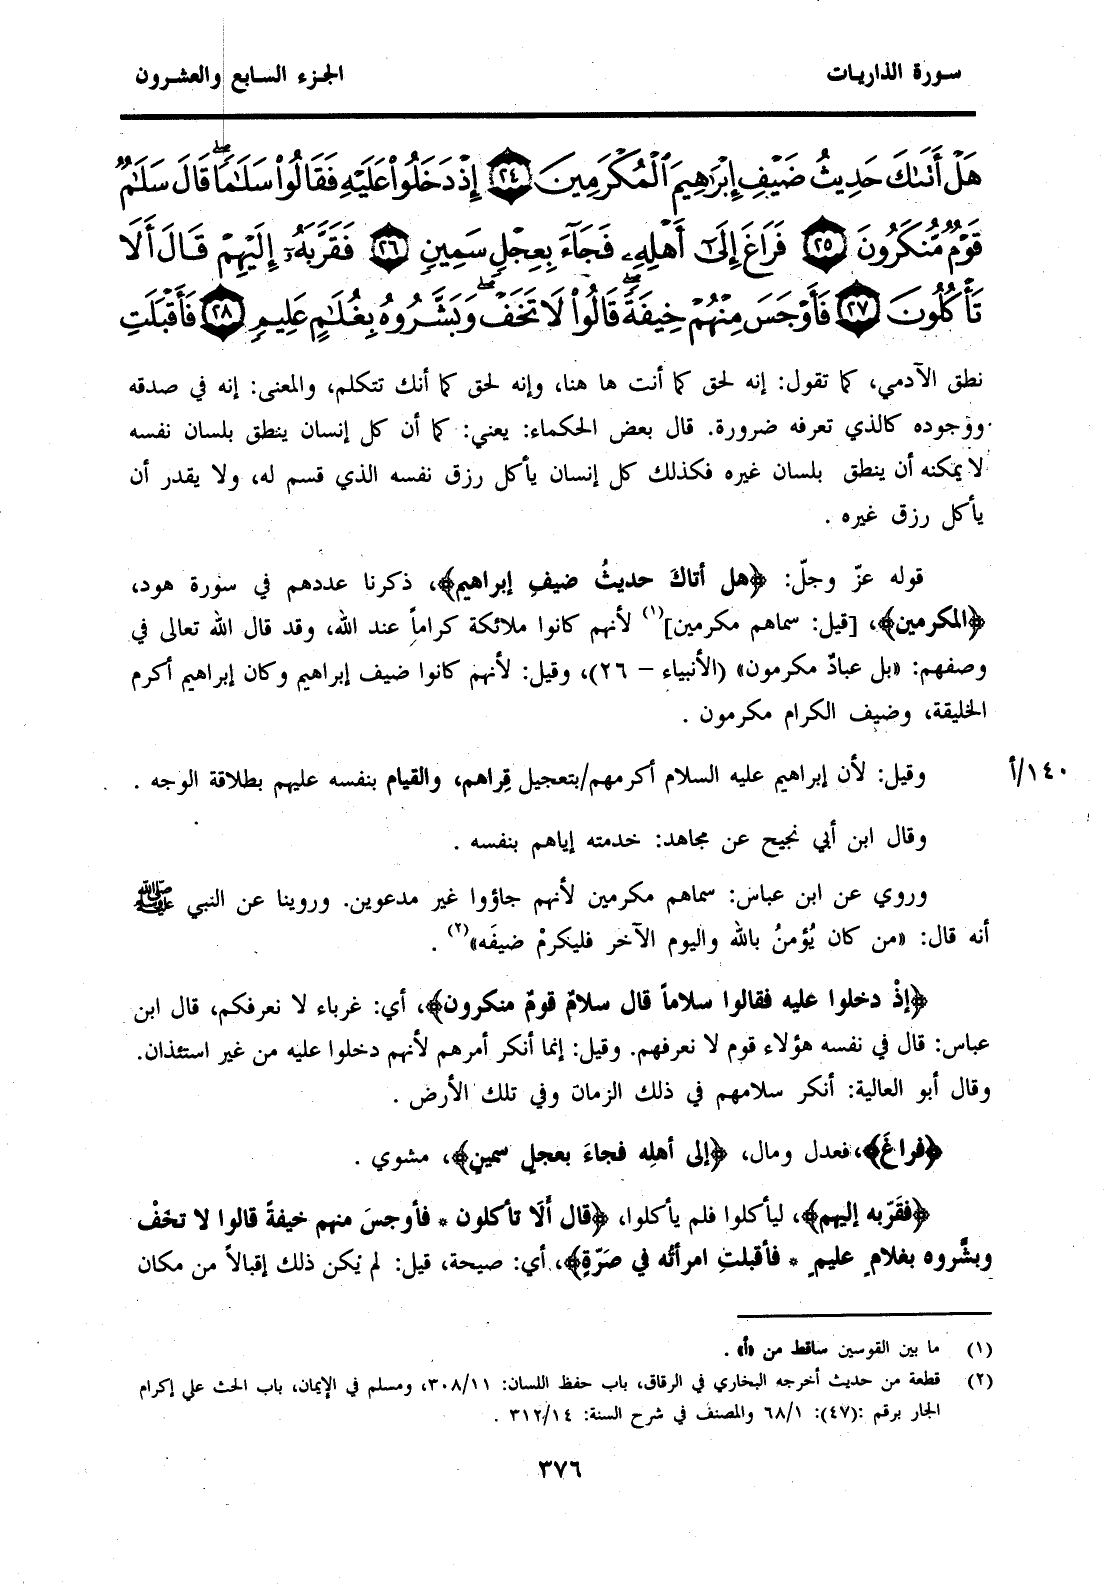 سورة الذاريات
الجزء السابع والعشرون
هَلْ أَتَىٰكَ حَدِيثُ ضَيْفِ إِبْرَٰهِيمَ ٱلْمُكْرَمِينَ ٢٤ إِذْ دَخَلُوا۟ عَلَيْهِ فَقَالُوا۟ سَلَٰمًا ۖ قَالَ سَلَٰمٌ
قَوْمٌ مُّنكَرُونَ ٢٥ فَرَاغَ إِلَىٰٓ أَهْلِهِۦ فَجَآءَ بِعِجْلٍ سَمِينٍ ٢٦ فَقَرَّبَهُۥٓ إِلَيْهِمْ قَالَ أَلَا
تَأْكُلُونَ ٢٧ فَأَوْجَسَ مِنْهُمْ خِيفَةً ۖ قَالُوا۟ لَا تَخَفْ ۖ وَبَشَّرُوهُ بِغُلَٰمٍ عَلِيمٍ ٢٨ فَأَقْبَلَتِ
نطق الآدمي، كما تقول: إنه لحق كما أنت ها هنا، وإنه لحق كما أنك تتكلم، والمعنى: إنه في صدقه
ووجوده كالذي تعرفه ضرورة. قال بعض الحكماء: يعني: كما أن كل إنسان ينطق بلسان نفسه
لا يمكنه أن ينطق بلسان غيره فكذلك كل إنسان يأكل رزق نفسه الذي قسم له، ولا يقدر أن
يأكل رزق غيره .
قوله عزّ وجلّ: ﴿هل أتاكَ حديثُ ضيفِ إبراهيم﴾، ذكرنا عددهم في سورة هود،
﴿المكرمين﴾، [قيل: سماهم مكرمين](١) لأنهم كانوا ملائكة كراماً عند الله، وقد قال الله تعالى في
وصفهم: «بل عبادٌ مكرمون» (الأنبياء – ٢٦)، وقيل: لأنهم كانوا ضيف إبراهيم وكان إبراهيم أكرم
الخليقة، وضيف الكرام مكرمون .
وقيل: لأن إبراهيم عليه السلام أكرمهم/بتعجيل قِراهم، والقيام بنفسه عليهم بطلاقة الوجه .
١٤٠/أ
وقال ابن أبي نجيح عن مجاهد: خدمته إياهم بنفسه .
وروي عن ابن عباس: سماهم مكرمين لأنهم جاؤوا غير مدعوين. وروينا عن النبي ﷺ
أنه قال: «من كان يُؤمنُ بالله واليوم الآخر فليكرمْ ضيفَه»(٢) .
﴿إذْ دخلوا عليه فقالوا سلاماً قال سلامٌ قومٌ منكرون﴾، أي: غرباء لا نعرفكم، قال ابن
عباس: قال في نفسه هؤلاء قوم لا نعرفهم. وقيل: إنما أنكر أمرهم لأنهم دخلوا عليه من غير استئذان.
وقال أبو العالية: أنكر سلامهم في ذلك الزمان وفي تلك الأرض .
﴿فراغَ﴾،فعدل ومال، ﴿إلى أهلِه فجاءَ بعجلٍ سمينٍ﴾، مشوي .
﴿فقَرّبه إليهم﴾، ليأكلوا فلم يأكلوا، ﴿قال أَلَا تأكلون * فأوجسَ منهم خيفةً قالوا لا تخَفْ
وبشَّروه بغلامٍ عليمٍ * فأقبلتِ امرأتُه في صَرّةٍ﴾، أي: صيحة، قيل: لم يكن ذلك إقبالاً من مكان
(١) ما بين القوسين ساقط من «أ» .
(٢) قطعة من حديث أخرجه البخاري في الرقاق، باب حفظ اللسان: ٣٠٨/١١، ومسلم في الإيمان، باب الحث على إكرام
الجار برقم :(٤٧): ٦٨/١ والمصنف في شرح السنة: ٣١٢/١٤ .
٣٧٦